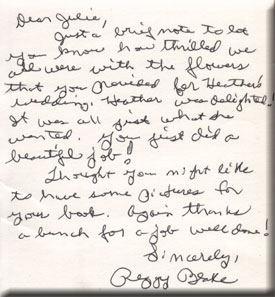 Dear Julie,
Just a brief note to let
you know how thrilled we
all were with the flowers
that you provided for Heather's
wedding. Heather was delighted!
It was all just what she
wanted. You just did a
beautiful job!
Thought you might like
to have some pictures for
your book. Again thanks
a bunch for a job well done!
Sincerely,
Peggy Blake